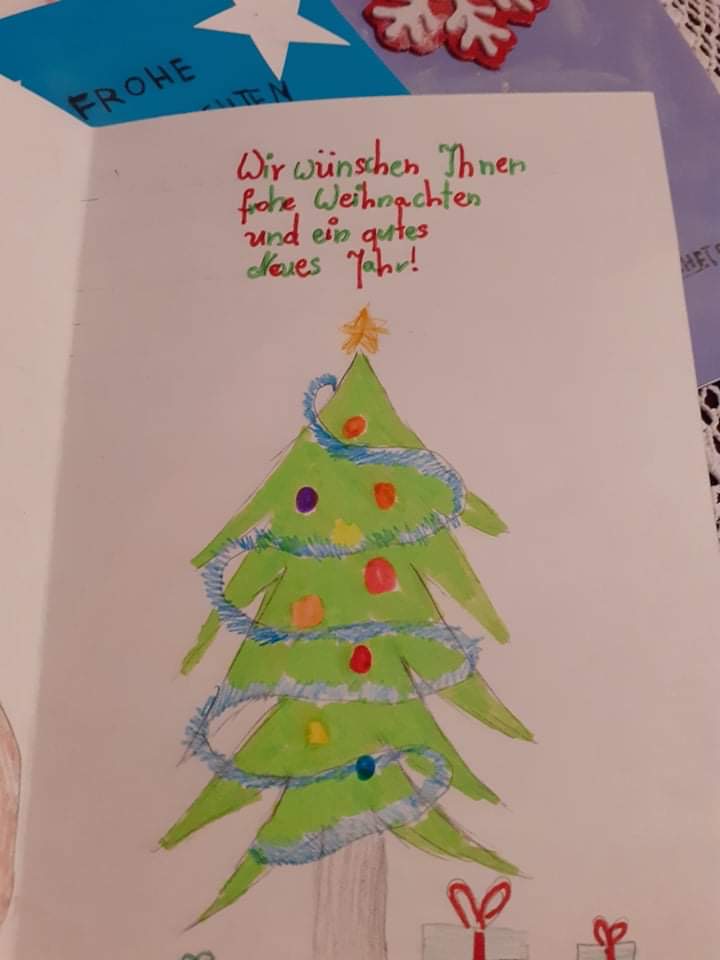 FROHE
Wir wünschen Ihnen
frohe Weihnachten
und ein gutes
Neues Jahr!